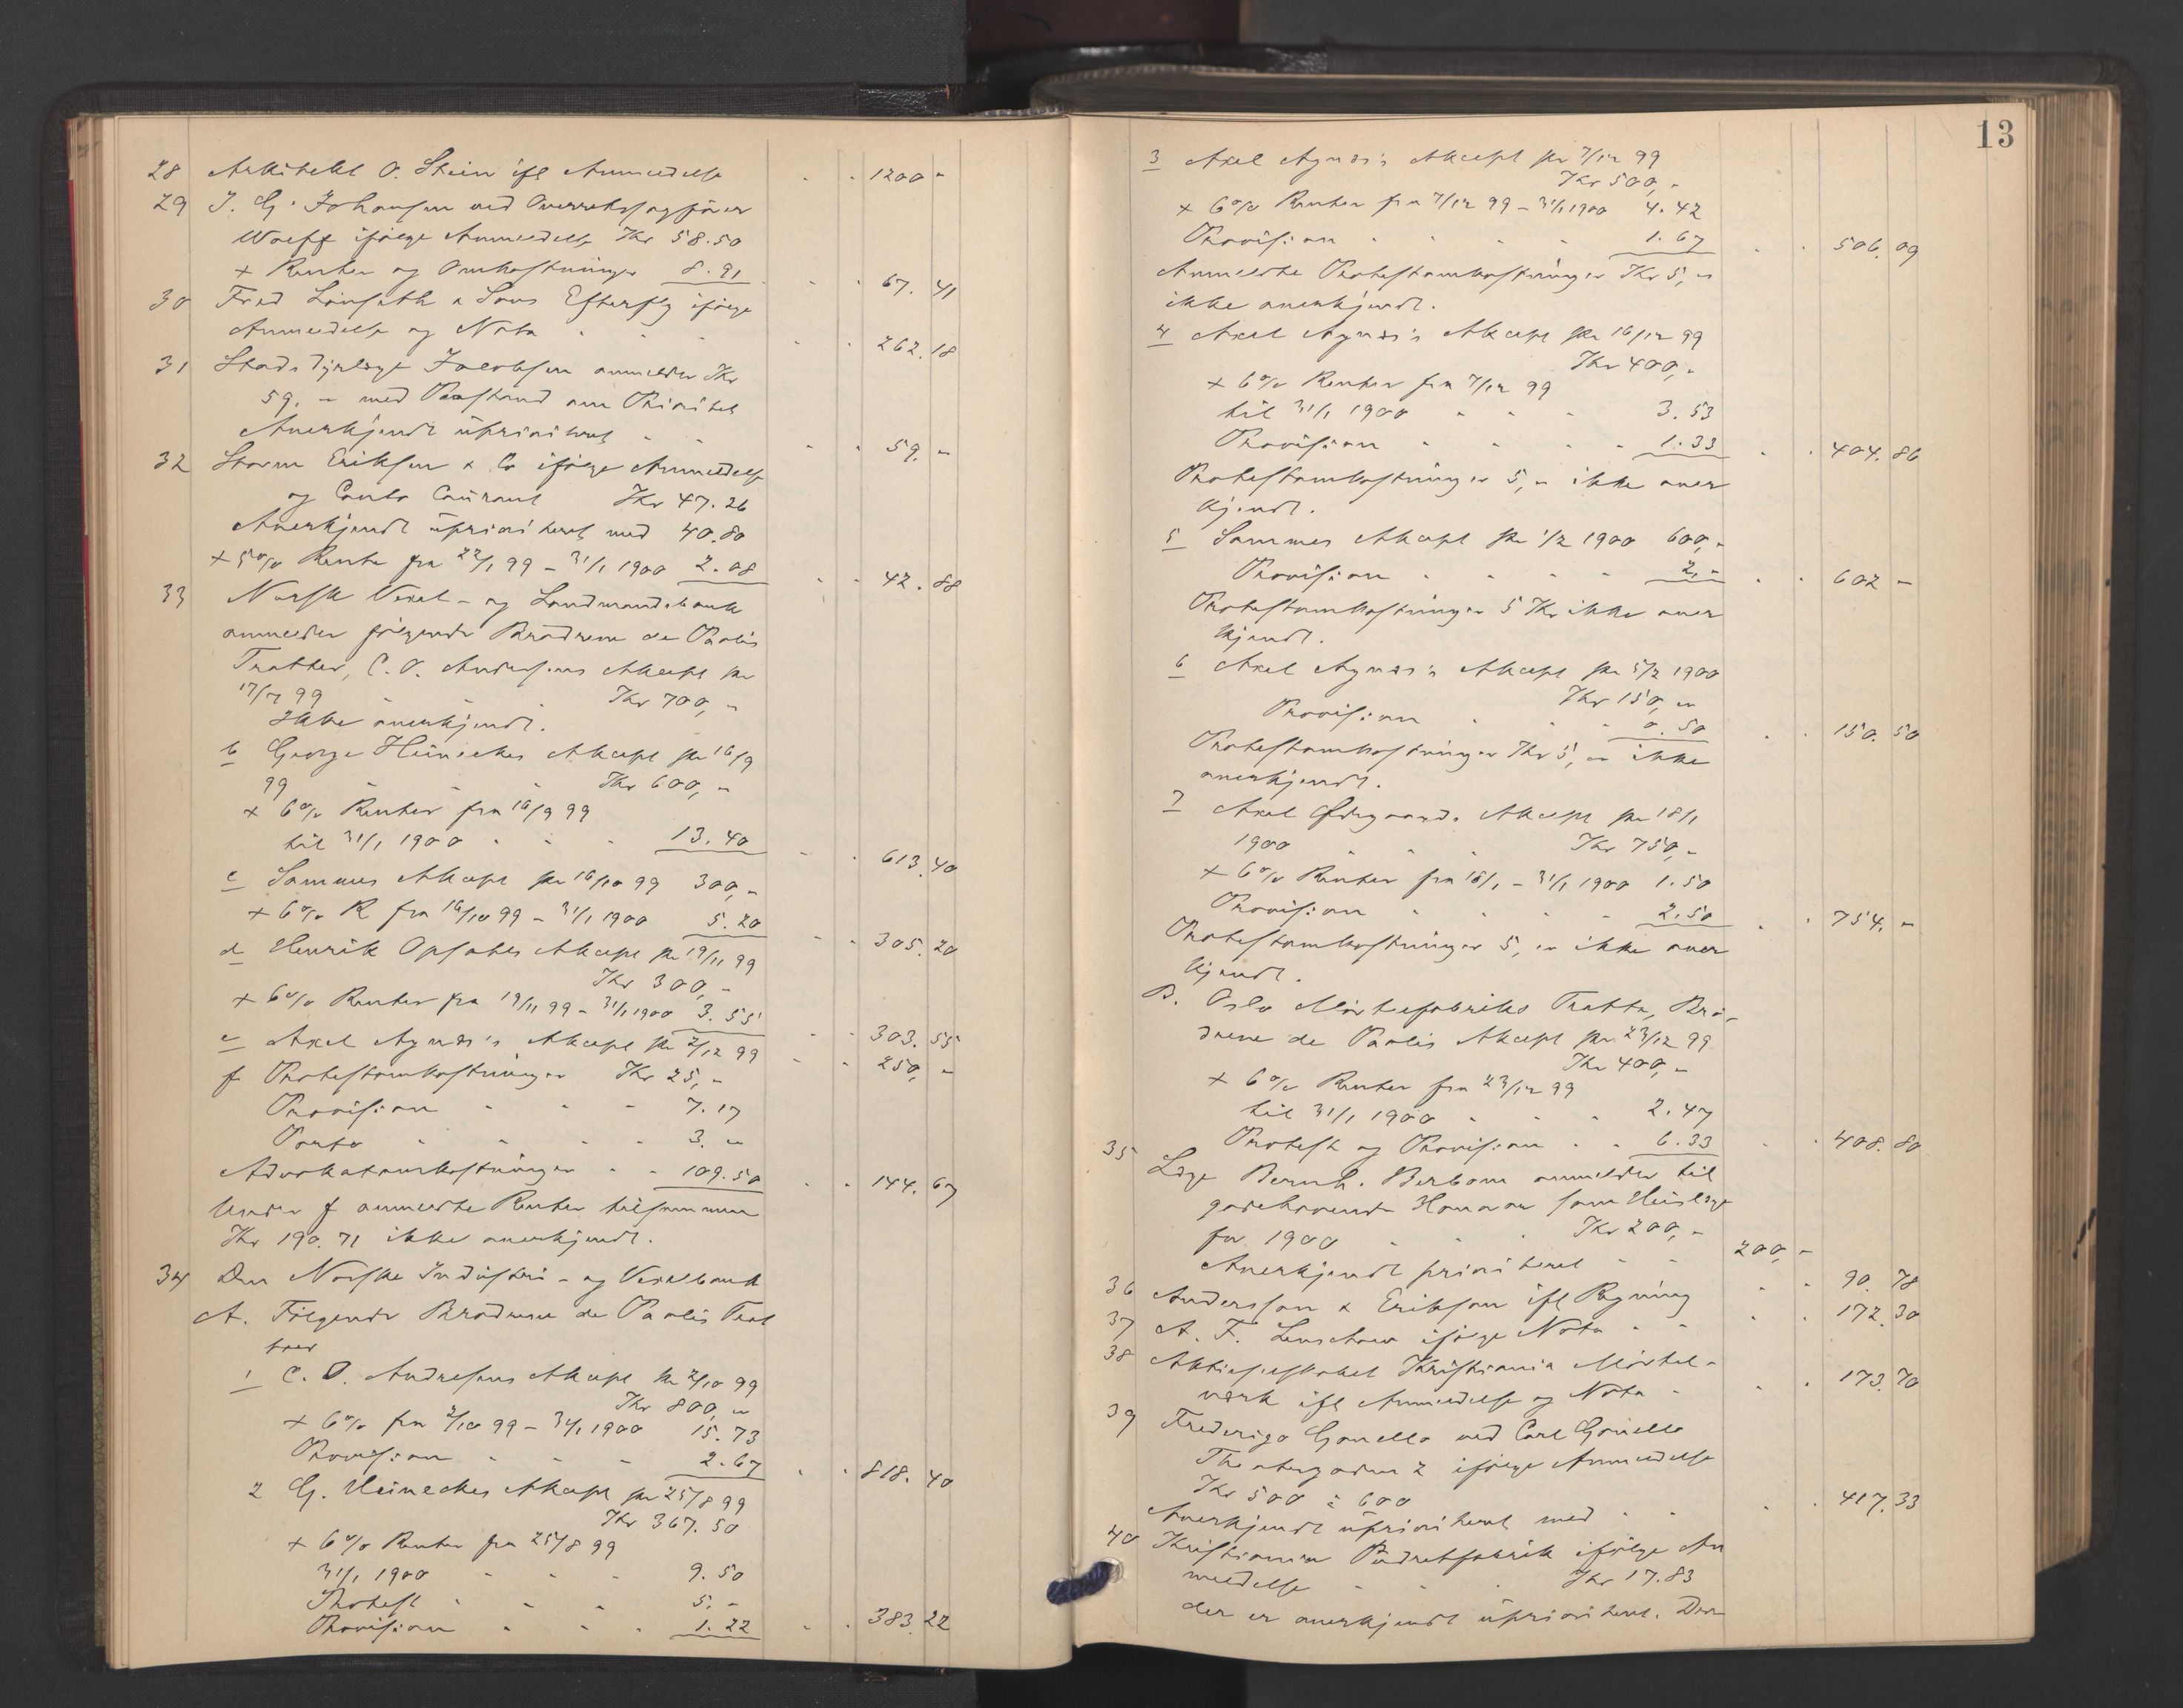 28 Arkitekt O. Stein ifl Anmeldelse " " 1200 "
29 J. G. Johansen ved Overretssagfører
Wolff ifølge Anmeldelse Kr 58.50
+ Renter og Omkostninger 8.91 " " 67.41
30 Fred Lønseth & Søns Efterflg ifølge
Anmeldelse og Nota " " " " " 262.18
31 Stadsdyrlæge Jacobsen anmelder Kr
59. " med Paastand om Prioritet
Anerkjendt uprioriteret " " " " 59. "
32 Storm Eriksen & Co ifølge Anmeldelse
og Conto Courant Kr 47.26
Anerkjendt uprioriteret med 40.80
+ 5% Rente fra 22/1 99 - 31/1 1900 2.08 " " 42.88
33 Norsk Vexel- og Landmandsbank
anmelder følgende Brødrene de Paolis
Tratter, C. O. Andersens Akcept pr
17/7 99 " " Kr 700, "
Ikke anerkjendt.
b George Heinickes Akcept pr 16/9
99 " " " Kr 600, "
+ 6% Renter fra 16/9 99
til 31/1 1900 " " " 13.40 " " 613.40
c Sammes Akcept pr 16/10 99 300, "
+ 6% R fra 16/10 99 - 31/1 1900 5.20 " " 305.20
d Henrik Opsahls Akcept pr 19/11 99
Kr 300, "
+ 6% Renter fra 19/11 99 - 31/1 1900 3.55 " " 303.55
e Axel Agnæs's Akcept pr 2/12 99 " " 250, "
f Protestomkostninger Kr 25, "
Provision " " " 7.17
Porto " " " " 3. "
Advokatomkostninger " " 109.50 " " 144.67
Under f anmeldte Renter tilsammen
Kr 190.71 ikke anerkjendt.
34 Den Norske Industri- og Vexelbank
A. Følgende Brødrene de Paolis Trat
ter
1 C. O. Andresens Akcept pr 2/10 99
Kr 800, "
+ 6% fra 2/10 99 - 31/1 1900 15.73
Provision " " " 2.67 " " 818.40
2 G. Heineckes Akcept pr 25/8 99
Kr 367.50
+ 6% Renter fra 25/8 99
31/1 1900 " " " 9.50
Protest " " " 5. "
Provision " " " 1.22 " " 383.22
13
3 Axel Agnæs's Akcept pr 7/12 99
Kr 500, "
+ 6% Renter fra 7/12 99 - 31/1 1900 4.42
Provision " " " " 1.67 " " 506.09
Anmeldte Protestomkostninger Kr 5, "
ikke anerkjendt.
4 Axel Agnæs's Akcept pr 16/12 99
Kr 400, "
+ 6% Renter fra 7/12 99
til 31/1 1900 " " " 3.53
Provision " " " " 1.33 " " 404.86
Protestomkostninger 5, " ikke aner
kjendt.
5 Sammes Akcept pr 1/2 1900 600, "
Provision " " " " 2, " " " 602 "
Protestomkostninger 5 Kr ikke aner
kjendt.
6 Axel Agnæs's Akcept pr 5/2 1900
Kr 150, "
Provision " " " 0.50 " " 150.50
Protestomkostninger Kr 5, " ikke
anerkjendt.
7 Axel Ødegaards Akcept pr 18/1
1900 " " " Kr 750, "
+ 6% Renter fra 18/1 - 31/1 1900 1.50
Provision " " " " 2.50 " " 754. "
Protestomkostninger 5, " ikke aner
kjendt.
B. Oslo Mørtelfabriks Tratte, Brø-
drene de Paolis Akcept pr 23/12 99
Kr 400, "
+ 6% Renter fra 23/12 99
til 31/1 1900 " " " 2.47
Protest og Provision " " 6.33 " " 408.80
35 Læge Bernh. Berbom anmelder til
godehavende Honorar som Huslæge
for 1900 " " " Kr 200, "
Anerkjendt prioriteret " " 200, "
36 Andersson & Erikson ifl Regning " " 90.78
37 A. F. Lenschow ifølge Nota " " " " 172.30
38 Aktieselskabet Kristiania Mørtel-
værk ifl Anmeldelse og Nota " " " 173.70
39 Frederigo Gonella ved Carl Gonella
Theatergaden 2 ifølge Anmeldelse
Kr 500 à 600
Anerkjendt uprioriteret med " " " " 417.33
40 Kristiania Pudretfabrik ifølge An
meldelse " " " Kr 17.83
der er anerkjendt uprioriteret. Den